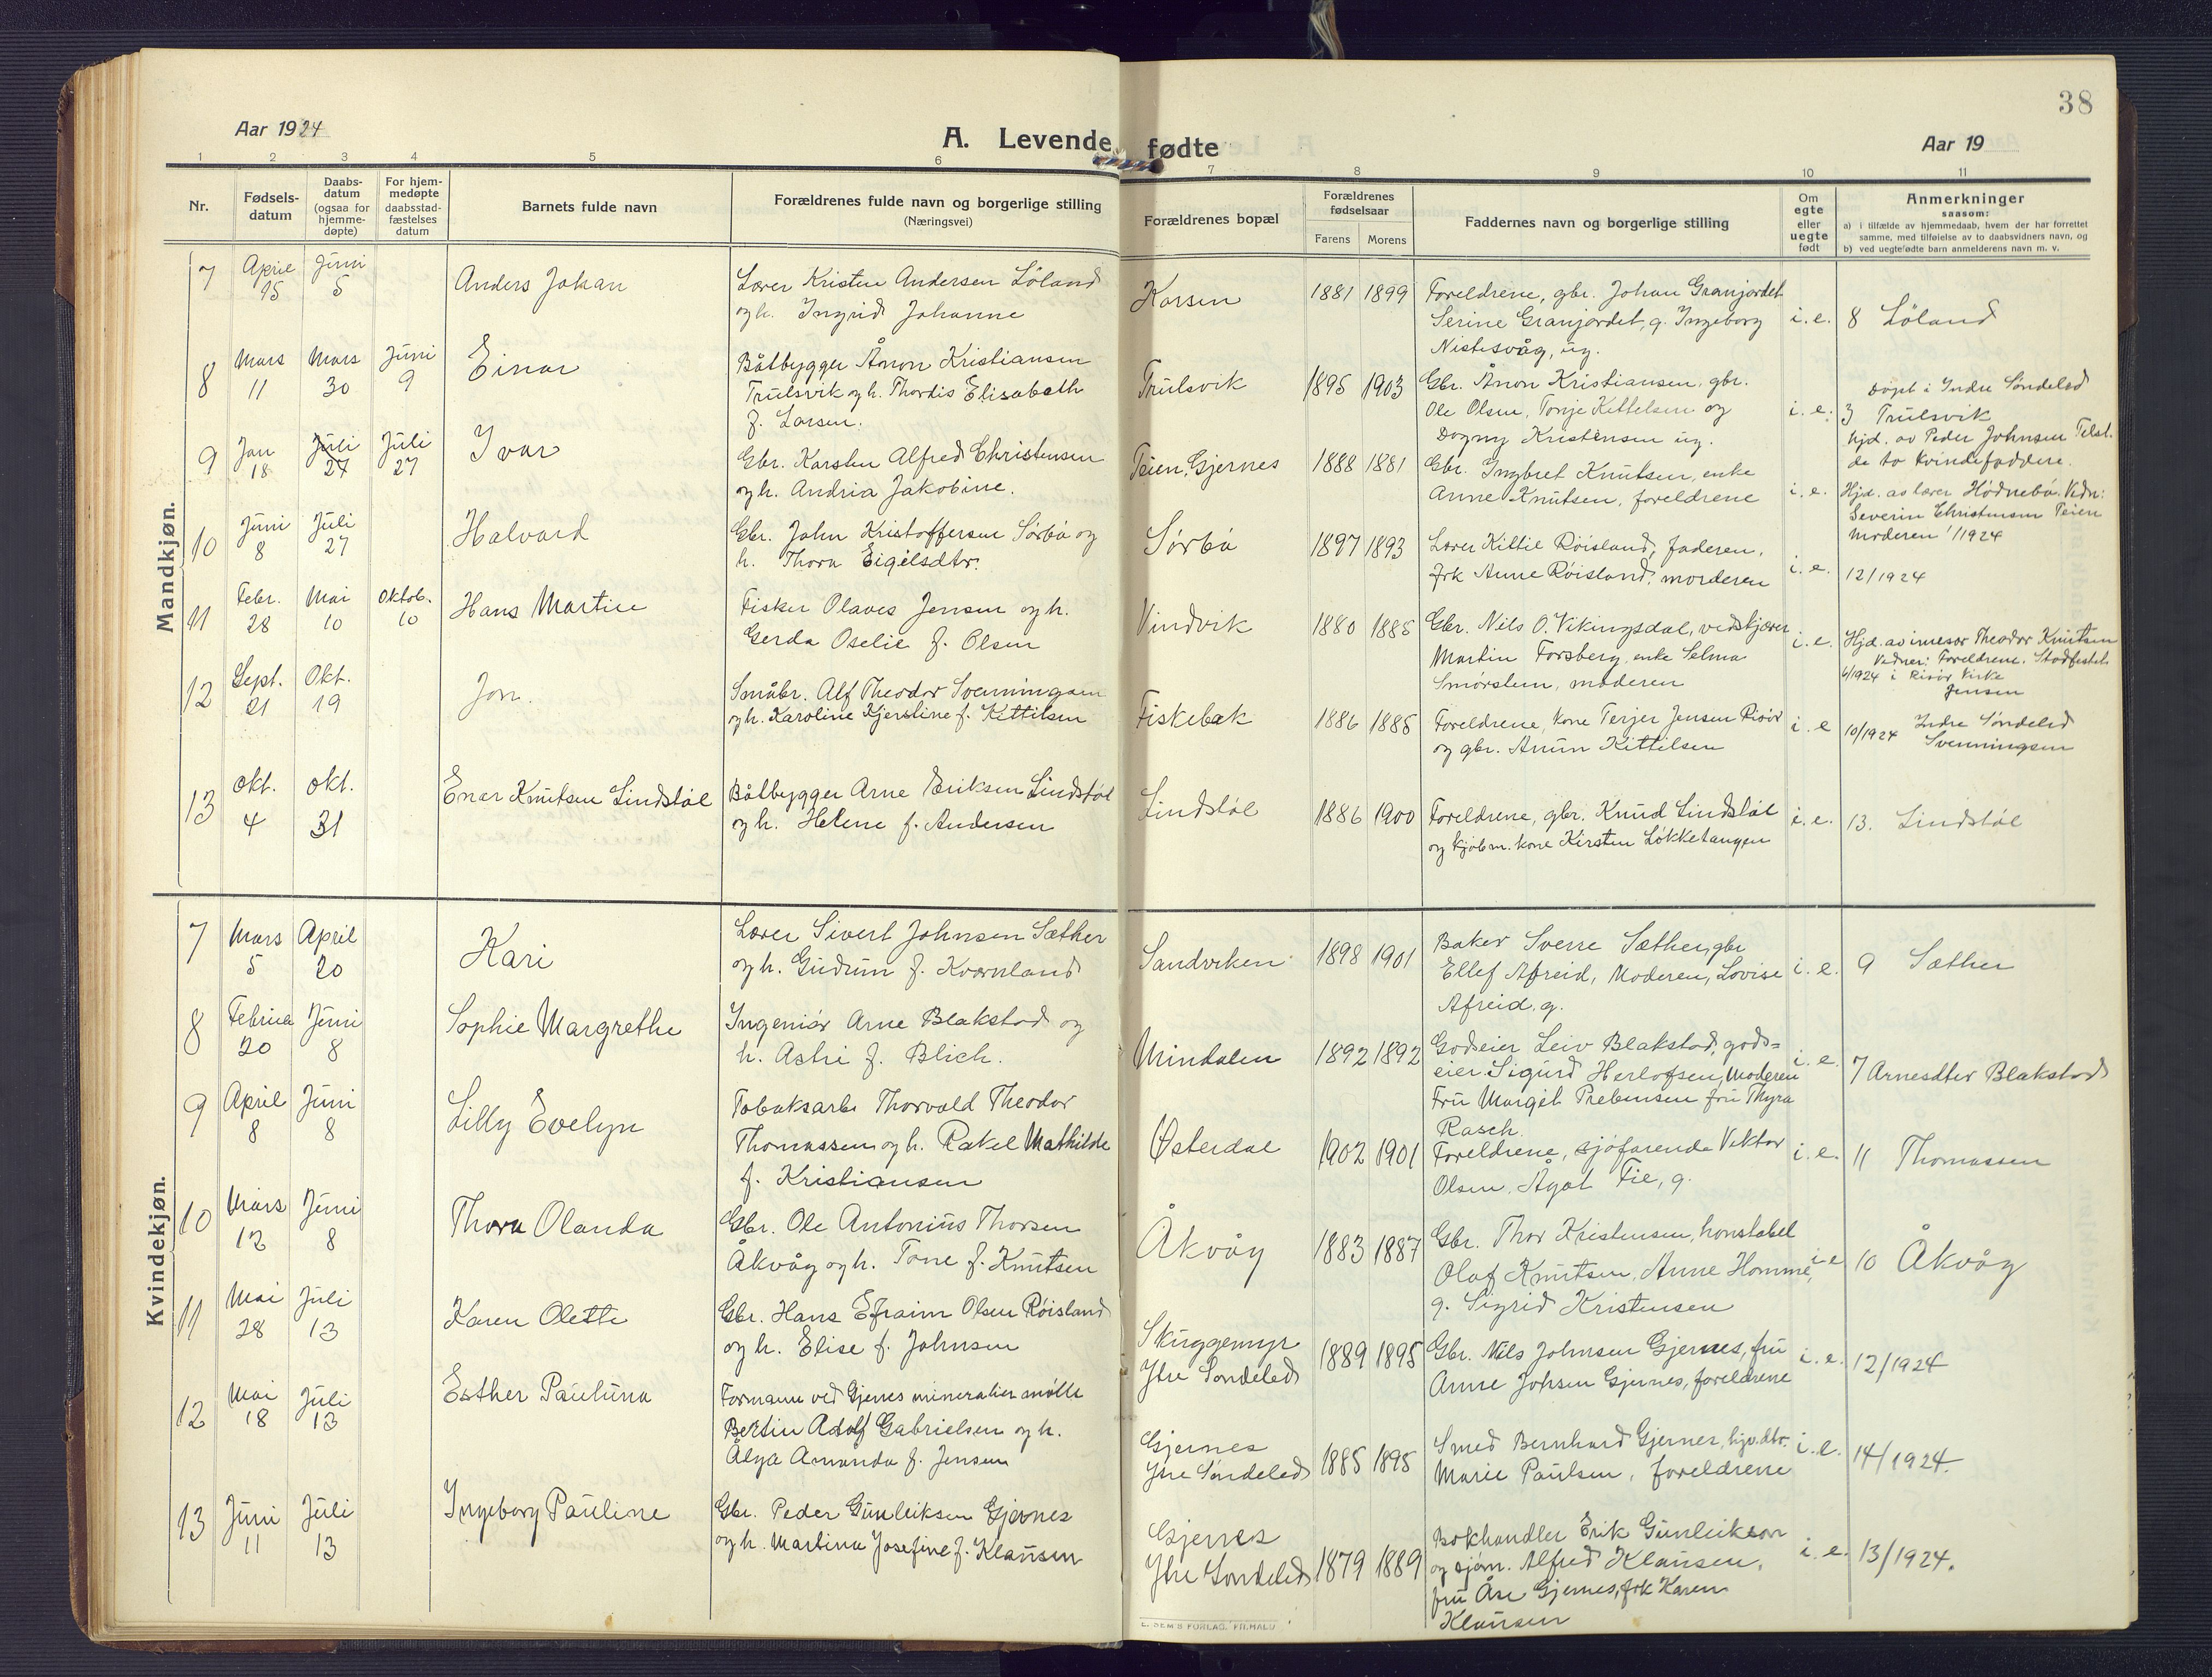 38
Aar 1924
A. Levende fødte
Aar 19
1 2 3 4 5 6 7 8 9 10 11
Nr.
Fødsels-
datum
Daabs-
datum
(ogsaa for
hjemme-
døpte)
For hjem-
medøpte
daabsstad-
fæstelses
datum
Barnets fulde navn
Forældrenes fulde navn og borgerlige stilling
(Næringsvei)
Forældrenes bopæl
Forældrenes
fødselsaar
Farens Morens
Faddernes navn og borgerlige stilling
Om
egte
eller
uegte
født
Anmerkninger
saasom:
a) i tilfælde av hjemmedaab, hvem der har forrettet
samme, med tilføielse av to daabsvidners navn, og
b) ved uegtefødte barn anmelderens navn m. v.
Mandkjøn.
7 April 15 Juni 5
Anders Johan
Lærer Kristen Andersen Löland
og h. Ingrid Johanne
Korsen
1881 1899
Foreldrene, gbr. Johan Granjordet
Serine Granjordet, g. Ingeborg
Nistesvåg, ug.
i. e.
8 Löland
8 Mars 11 Mars 30 Juni 9
Einar
Båtbygger Ånon Kristiansen
Trulsvik og h. Thordis Elisabeth
f. Larsen.
Trulsvik
1895 1903
Gbr. Ånon Kristiansen, gbr.
Ole Olsen, Tonje Kittelsen og
Dagny Kristensen ug.
i. e.
Döpt i Indre Söndeled
3 Trulsvik
hjd. av Peder Johnsen Telst.
de to kvindefaddere.
9 Jan 18 Juli 27 Juli 27
Ivar
Gbr. Karsten Alfred Christensen
og h. Andria Jakobine.
Teien, Gjernes
1888 1881
Gbr. Ingbret Knutsen, enke
Anne Knutsen, foreldrene
i. e.
Hjd. av lærer Hödnebö. Vidn:
Severin Christensen Teien
moderen 1/1924
10 Juni 8 Juli 27
Halvard
Gbr. John Kristoffersen Sörbö og
h. Thora Eigelsdtr.
Sörbö
1897 1893
Lærer Kittil Röisland, faderen,
frk Anne Röisland, morderen
i. e.
12/1924
11 Febr. 28 Mai 10 Oktob. 10
Hans Martin
Fisker Olaves Jensen og h.
Gerda Oselie f. Olsen
Vindvik
1880 1885
Gbr. Nils O. Vikingsdal, vedskjærer
Martin Forsberg, enke Selma
Smörsten, moderen
i. e.
Hjd. av Theodor Knutsen
Vidner: Foreldrene. Stadfestet
6/1924 i Risör kirke
Jensen
12 Sept. 21 Okt. 19
Jon.
Småbr. Alf Theodor Svenningsen
og h. Karoline Kjerstine f. Kittilsen
Fiskebæk
1886 1885
Foreldrene, kone Terjer Jensen Risör
og gbr. Anun Kittilsen
i. e
10/1924 Indre Söndeled
Svenningsen
13 Okt. 4 Okt. 31
Enar Knutsen Lindstöl
Båtbygger Arne Eriksen Lindstöl
og h. Helene f. Andersen
Lindstöl
1886 1900
Foreldrene, gbr. Knud Lindstöl
og kjöbm. kone Kirsten Lökketangen
i. e.
13. Lindstöl
Kvindekjøn.
7 Mars 5 April 20
Kari
Lærer Sivert Johnsen Sæther
og h. Gudrun f. Kværnland
Sandviken
1898 1901
Baker Sverre Sæther, gbr
Ellef Afreid, Moderen, Lovise
Afreid, g.
i. e.
9 Sæther
8 Februa 20 Juni 8
Sophie Margrethe
Ingeniör Arne Blakstad og
h. Astri f. Blich.
Mindalen
1892 1892
Godseier Leiv Blakstad, gods=
eier Sigurd Herlofsen, Moderen
Fru Margit Prebensen fru Thyra
Rasch.
i. e.
7 Arnesdtr Blakstad
9 April 8 Juni 8
Lilly Evelyn
Tobaksarb. Thorvald Theodor
Thomassen og h. Rakel Mathilde
f. Kristiansen
Østerdal
1902 1901
Foreldrene, sjöfarende Viktor
Olsen, Ågot Fie, g.
i. e.
11 Thomassen
10 Mars 12 Juni 8
Thora Olanda
Gbr. Ole Antonius Thorsen
Åkvåg og h. Tone f. Knutsen
Åkvåg
1883 1887
Gbr. Thor Kristensen, konstabel
Olaf Knutsen, Anne Homme,
g. Sigrid Kristensen
i. e
10 Åkvåg
11 Mai 28 Juli 13
Karen Olette
Gbr. Hans Efraim Olsen Röisland
og h. Elise f. Johnsen
Skuggemyr
Ytre Sondeled
1889 1895
Gbr. Nils Johnsen Gjernes, fru
Anne Johsen Gjernes, foreldrene
i. e.
12/1924
12 Mai 18 Juli 13
Esther Pauluna
Formann ved Gjernes mineralier mölle
Bertin Adolf Gabrielsen og h.
Ålga Amanda f. Jensen
Gjernes
Ytre Söndeled
1885 1895
Smed Bernhard Gjernes, hjv. dtr.
Marie Paulsen, foreldrene
i. e.
14/1924.
13 Juni 11 Juli 13
Ingeborg Pauline
Gbr. Peder Gunleiksen Gjernes
og h. Martina Josefine f. Klausen
Gjernes
Ytre Sondeled
1879 1889
Bokhandler Erik Gunleiksen
og sjöm. Alfred Klausen,
fru Åse Gjernes, frk Karen
Klausen
i. e.
13/1924.
E. SEM'S FORLAG, FR.HALD